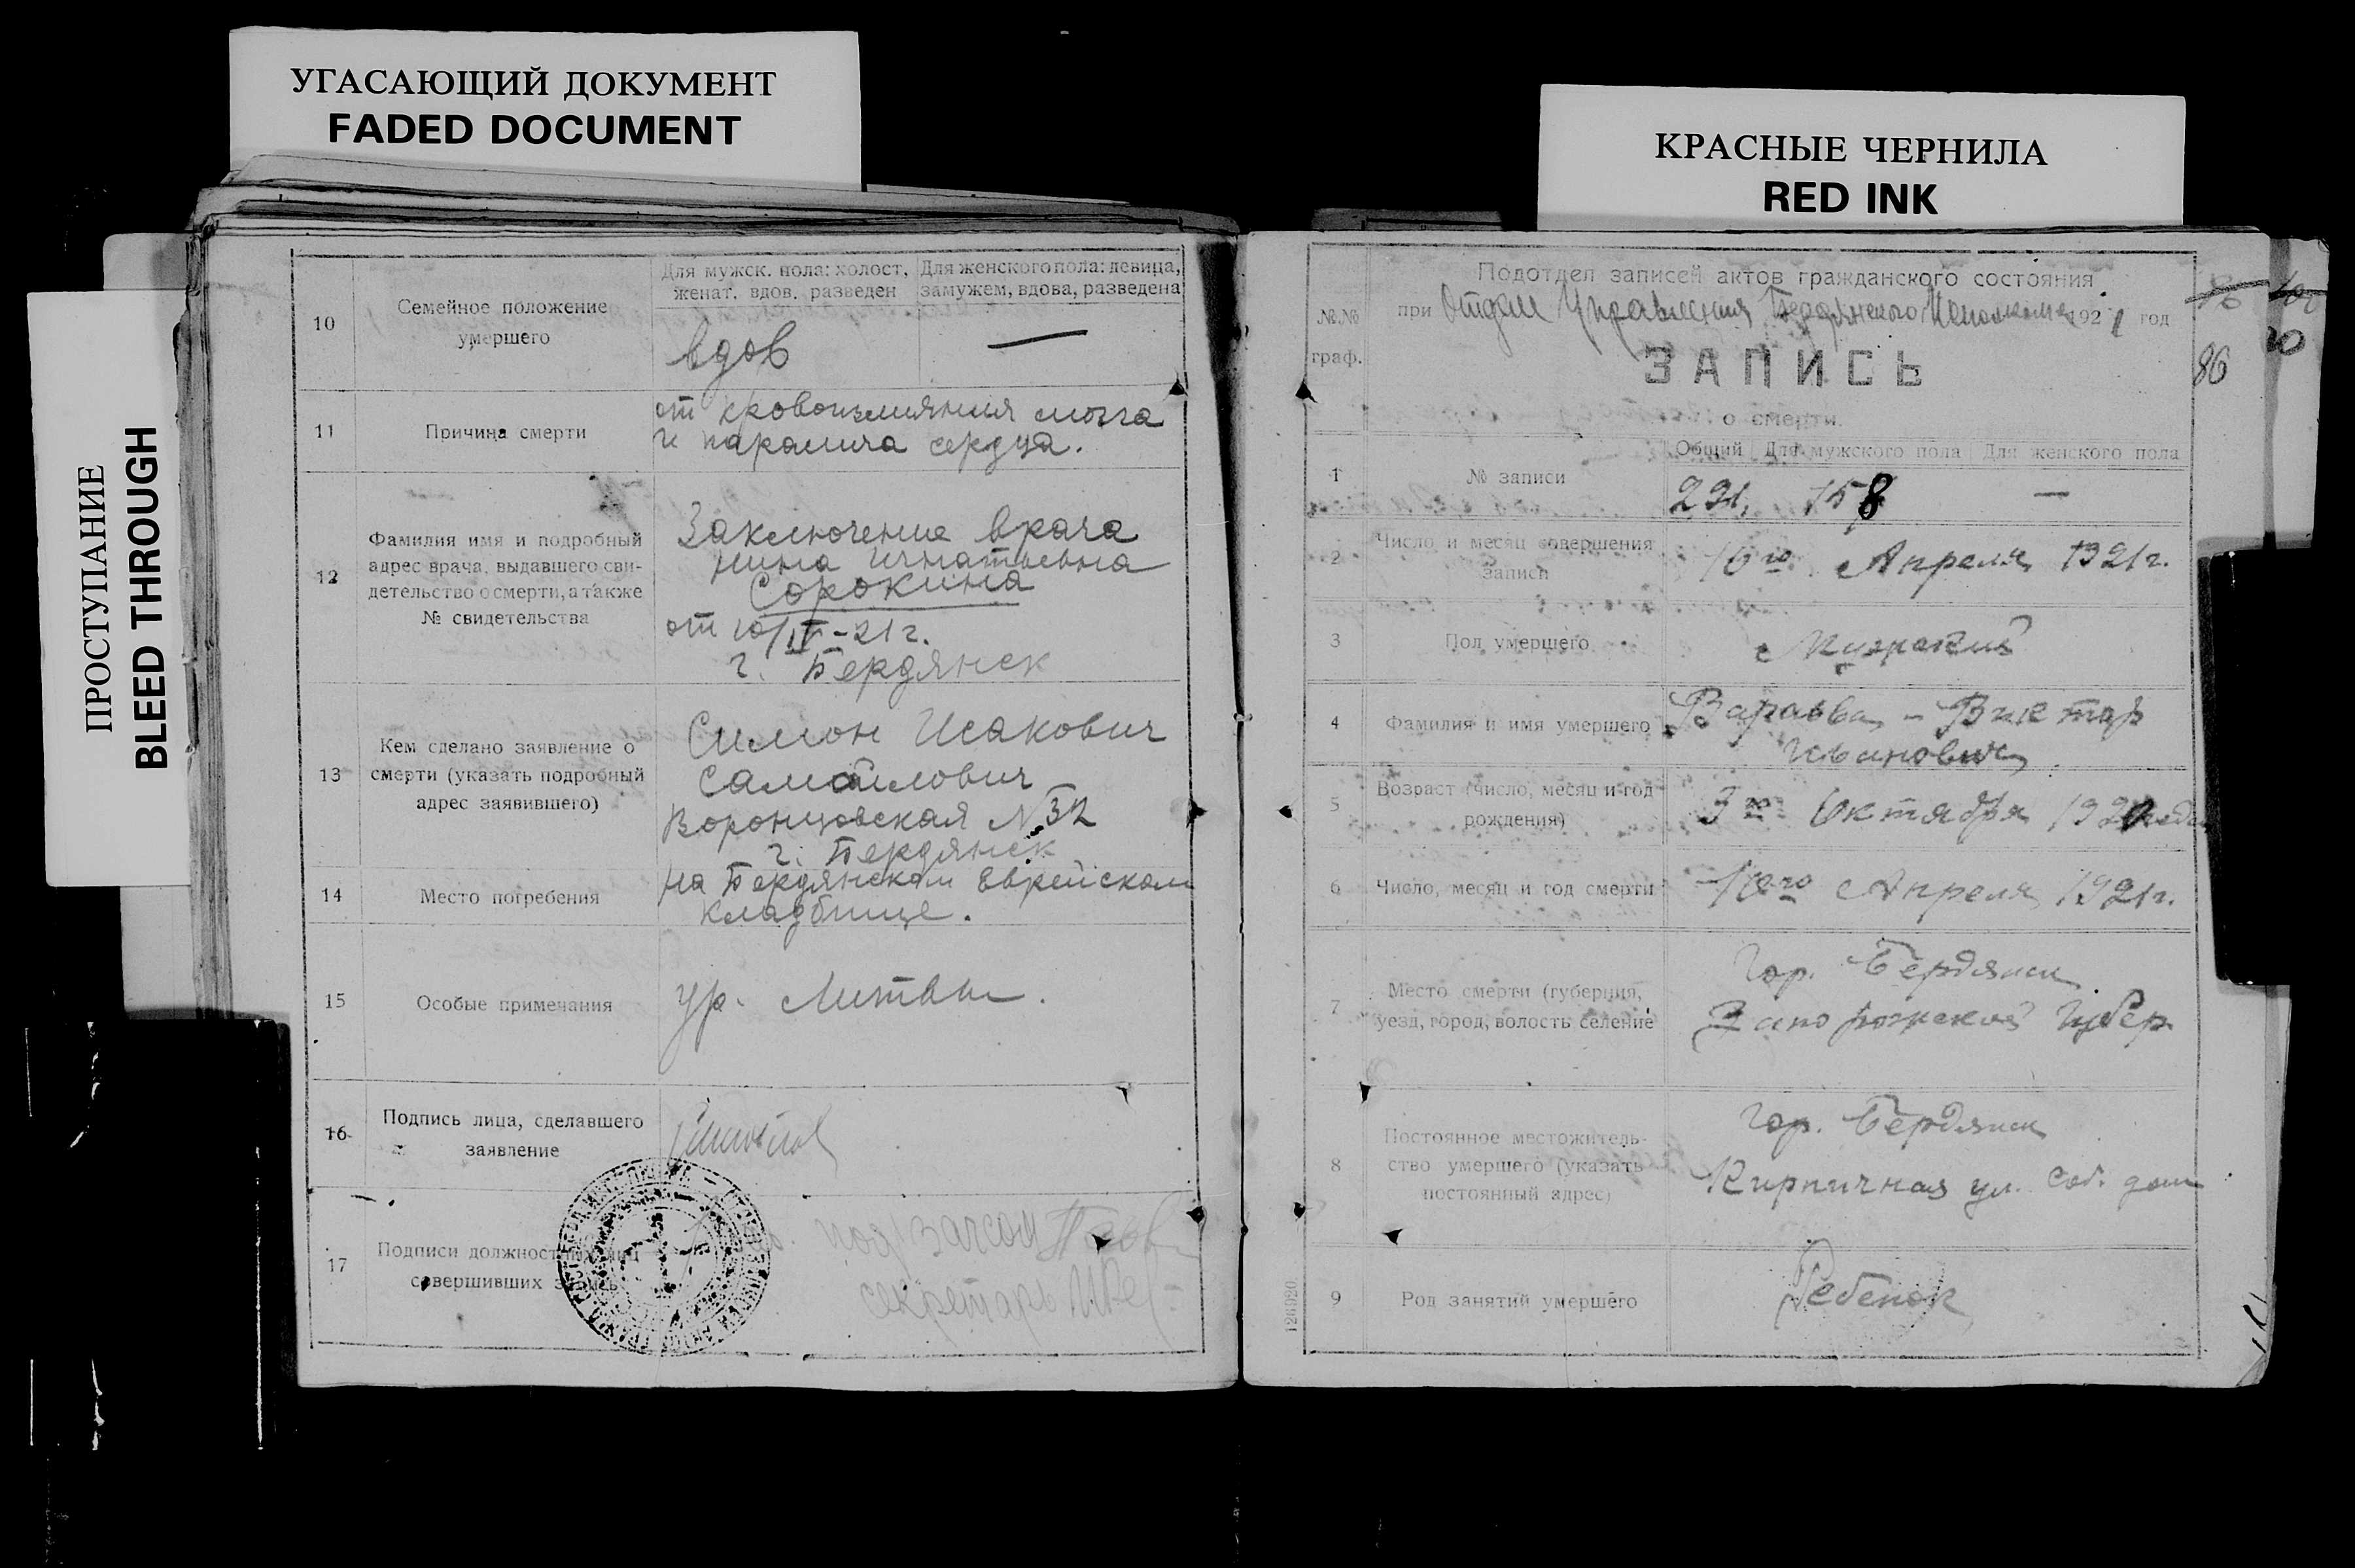 УГАСАЮЩИЙ ДОКУМЕНТ
FADED DOCUMENT
КРАСНЫЕ ЧЕРНИЛА
RED INK
ПРОСТУПАНИЕ
BLEED THROUGH
10
Семейное положение
умершего
Для мужск. пола: холост,
женат. вдов. разведен
Для женского пола: девица,
замужем, вдова, разведена
вдов
—
11
Причина смерти
от кровоизлияния мозга
и паралича сердца.
12
Фамилия имя и подробный
адрес врача, выдавшего сви-
детельство о смерти, а также
№ свидетельства
Заключение врача
Нина Игнатьевна
Сорокина
от 10/IV-21 г.
г. Бердянск
13
Кем сделано заявление о
смерти (указать подробный
адрес заявившего)
Симон Исакович
Самойлович
Воронцовская N 32
г. Бердянск
14
Место погребения
на Бердянском Еврейском
кладбище.
15
Особые примечания
ур. Литвы.
16
Подпись лица, сделавшего
заявление
17
Подписи должностных лиц
совершивших запись
секретарь
№№
граф.
Подотдел записей актов гражданского состояния
при Отделе Управления Бердянского Исполкома 1921 год
ЗАПИСЬ
о смерти.
86
1
№ записи
Общий
Для мужского пола
Для женского пола
291, 158 —
2
Число и месяц совершения
записи
10го Апреля 1921 г.
3
Пол умершего
Мужский
4
Фамилия и имя умершего
Варавва - Виктор
Иванович
5
Возраст (число, месяц и год
рождения)
3го Октября 1920 года
6
Число, месяц и год смерти
10го Апреля 1921 г.
7
Место смерти (губерния,
уезд, город, волость селение
Гор. Бердянск
Запорожской Губер.
8
Постоянное местожитель-
ство умершего (указать
постоянный адрес)
Гор. Бердянск
Кирпичная ул. Соб. дом
9
Род занятий умершего
Ребенок
126920